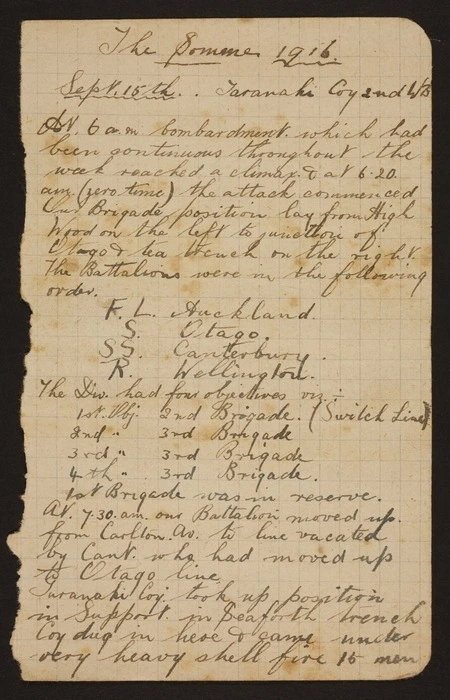 The Somme 1916.
Sept. 15th. . Taranaki Coy 2nd W.B
At. 6 a.m bombardment which had
been continuous throughout the
week reached a climax & at 6.20
am. (zero time) the attack commenced
Our Brigade position lay from High
Wood on the left to junction of
Otago & tea trench on the right.
The Battalions were in the following
order.
F. L. Auckland.
S. Otago.
S S. Canterbury.
R. Wellington.
The Div. had four objectives viz :-
1st. Obj. 2nd Brigade. (Switch Line)
2nd " 3rd Brigade
3rd " 3rd Brigade
4th " 3rd Brigade.
1st Brigade was in reserve.
At. 7.30. am. our Battalion moved up
from Carlton. Av. to line vacated
by Cant. who had moved up
to Otago line
Taranaki Coy. took up position
in Support in Seaforth trench
Coy dug in here & came under
very heavy shell fire 15 men